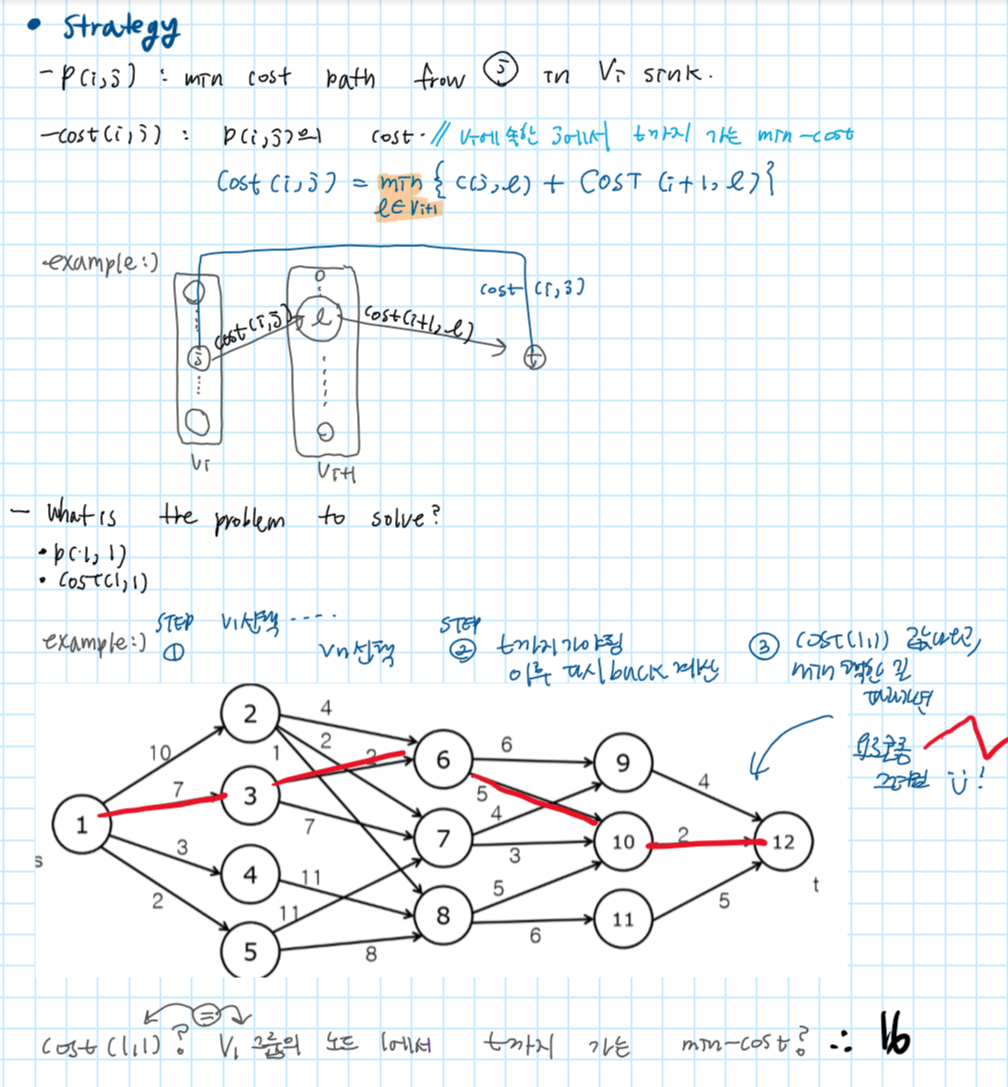 • Strategy
- P(i,j) : min cost path from ⓙ in Vi sink.
- cost(i,j) : p(i,j)의 cost. // Vi에 속한 j에서 t까지 가는 min-cost
Cost(i,j) = min { c(j,l) + COST (i+1, l)}
l∈Vi+1
example:)
cost (i,j)
cost(i,j)
l
cost(i+1, l)
j
t
Vi
Vi+1
- What is the problem to solve?
• p(1, 1)
• COST(1,1)
example:)
STEP ① V1선택 ....
Vn선택
STEP ② t까지 가야됨
이후 다시 back 계산
③ COST(1,1) 값
min 길
2 4 6 6 9
10 2 2 4
1 5
7 3 4
1 7 10 2 12
s 3 7 3
4 11 5 t
2 11 8 11 5
6
5 8
cost (1,1)? = V1 그룹의 노드 1에서 t까지 가는 min-cost? ∴ 16